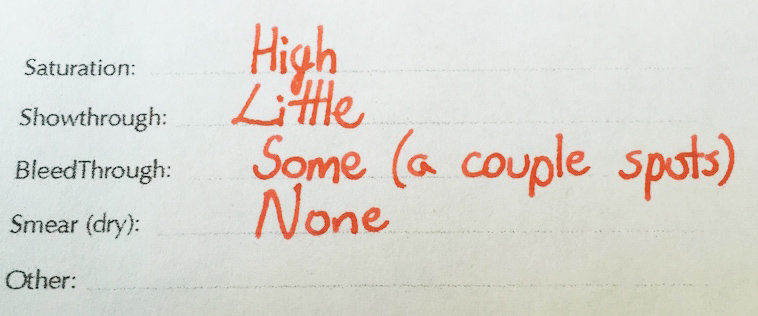 Saturation: High
Showthrough: Little
BleedThrough: Some (a couple spots)
Smear (dry): None
Other: